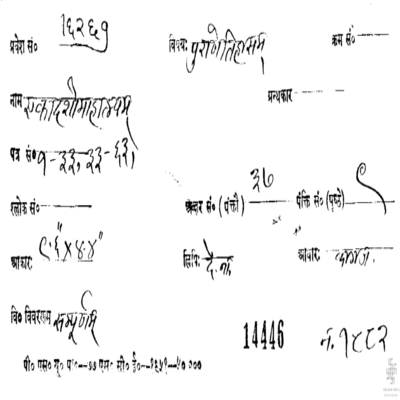 प्रवेश सं० १६२६१ विषय: पुराणेतिहासम् क्रम सं०
नाम एकादशीमाहात्म्यम् ग्रन्थकार
पत्र सं० १-३३, ३३-६३
श्लोक सं० अक्षर सं० (पंक्तौ) ३७ पंक्ति सं० (पृष्ठे) ९
आकार: ९.६" X ४.४" लिपि: दे.ना. आधार: कागज.
वि० विवरणम् सम्पूर्णम्
14446 सं. १८८२
पी० एस० यू० पी०